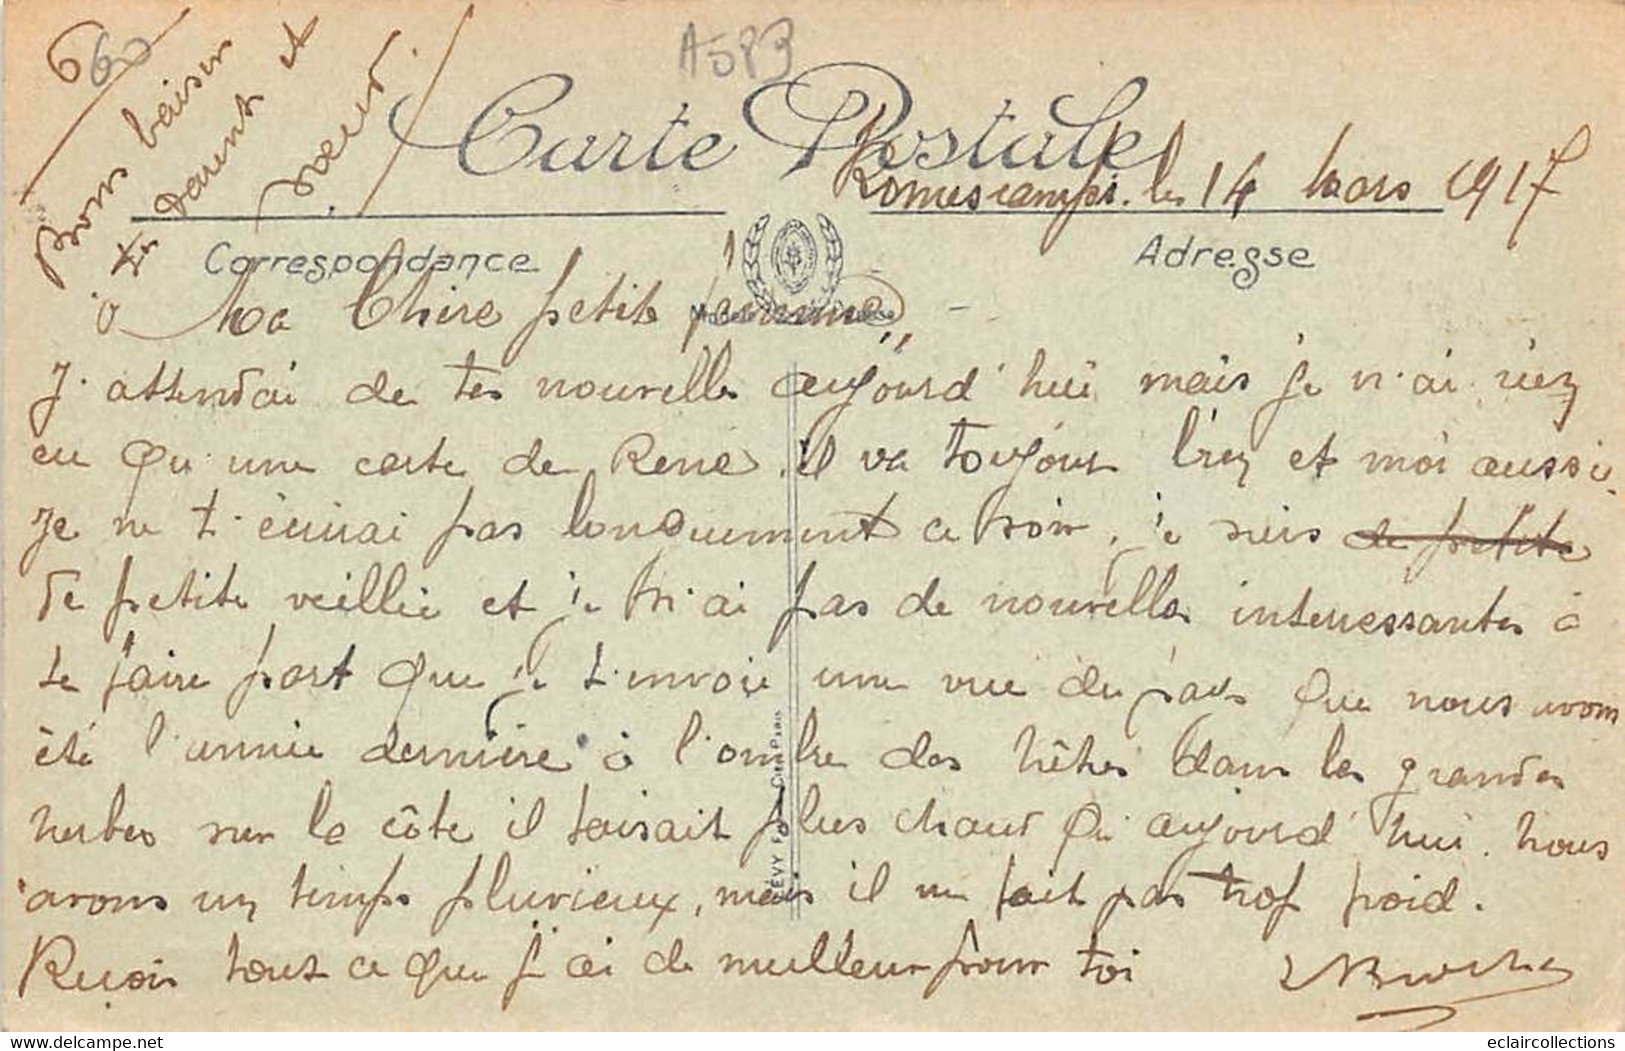 60
A583
Bons baiser
à tes parent et
sœur.
Carte Postale
Romescamps. les 14 Mars 1917
Correspondance
Adresse
Ma Chère petite femme
J'attendai de tes nouvelles aujourd'hui mais je n'ai rien
eu qu'une carte de René. il va toujours bien et moi aussi.
Je ne t'écrirai pas longuement ce soir, je suis de petite
de petite veillée et je n'ai pas de nouvelles interressantes à
te faire part que je t'envoie une vue du pays que nous avons
été l'année dernière à l'ombre des hêtres dans les grandes
herbes sur la côte il faisait plus chaud qu'aujourd'hui. Nous
avons un temps pluvieux, mais il ne fait pas trop froid.
Reçois tous ce que j'ai de meilleur pour toi
LÉVY Fils & Cie Paris
eclaircollections